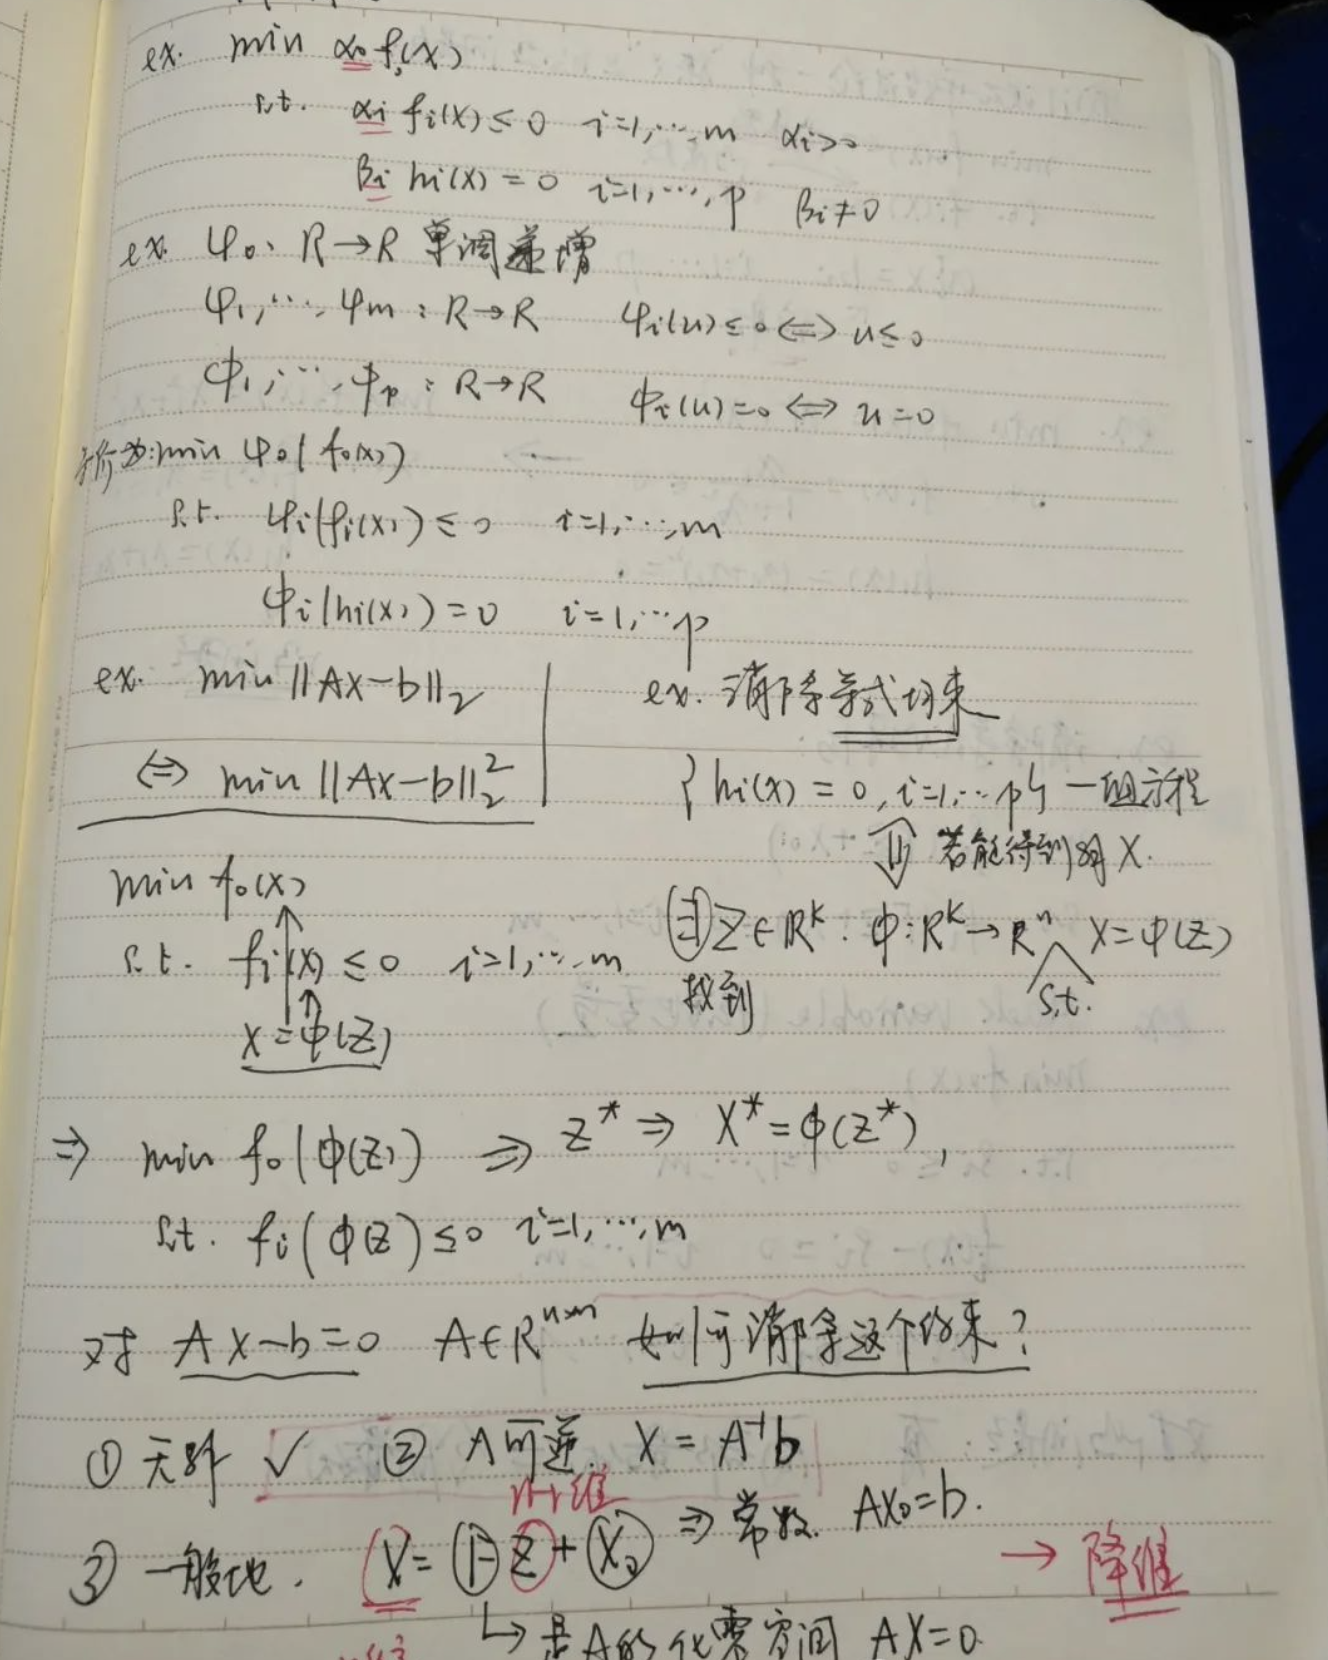 ex. min α₀ f₀(x)
s.t. αi fi(x) ≤ 0 i=1,⋯,m αi>0
βi hi(x) = 0 i=1,⋯,p βi≠0
ex. φ₀: R→R 单调递增
φ₁,⋯,φm : R→R φi(u)≤0 ⇔ u≤0
ϕ₁,⋯,ϕp : R→R ϕi(u)=0 ⇔ u=0
等价为: min φ₀(f₀(x))
s.t. φi(fi(x)) ≤ 0 i=1,⋯,m
ϕi(hi(x)) = 0 i=1,⋯p
ex. min ||Ax-b||₂
⇔ min ||Ax-b||₂²
ex. 消除等式约束
{hi(x) = 0, i=1,⋯p} 一组方程
⇓ 若能得到解 x.
∃ z∈R^k. ϕ: R^k→R^n x=ϕ(z)
找到 s.t.
min f₀(x)
s.t. fi(x) ≤ 0 i=1,⋯,m
x=ϕ(z)
⇒ min f₀(ϕ(z)) ⇒ z* ⇒ x*=ϕ(z*),
s.t. fi(ϕ(z)) ≤0 i=1,⋯,m
对 Ax-b=0 A∈R^{n×m} 如何消除这个约束?
① 无解 ✓ ② A可逆. x = A⁻¹b
③ 一般地. x = F z + x₀ ⇒ 常数. Ax₀=b. → 降维
↳ 是A的化零空间 AX=0